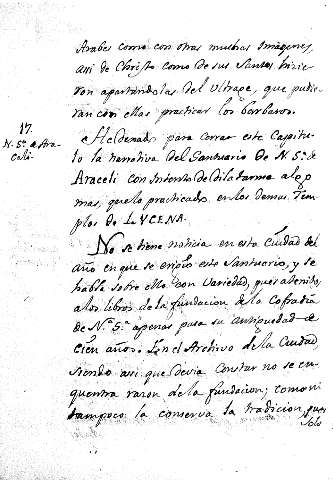 Arabes como con otras muchas Imagenes,
asi de Christo como de sus Santos hizie
ron apartandolas del Ultrage, que pudie
ran con ellas practicar los barbaros.
17.
N. S.ª de Ara
celi
He dexado para cerrar este Capitu
lo la narrativa del Santuario de N. S.ª de
Araceli con intento de dilatarme algo
mas, que lo practicado, en los demas Tem
plos de LUCENA.
No se tiene noticia en esta Ciudad del
año en que se erigio este Santuario, y se
habla sobre ello con Variedad, pues atento,
a los libros de la fundacion de la Cofradia
de N.ª S.ª apenas pasa su antiguedad de
cien años. En el Archivo de la Ciudad,
siendo assi que devia constar no se en
quentra razon de la fundacion; como ni
tampoco la conserva la tradicion, pues
solo